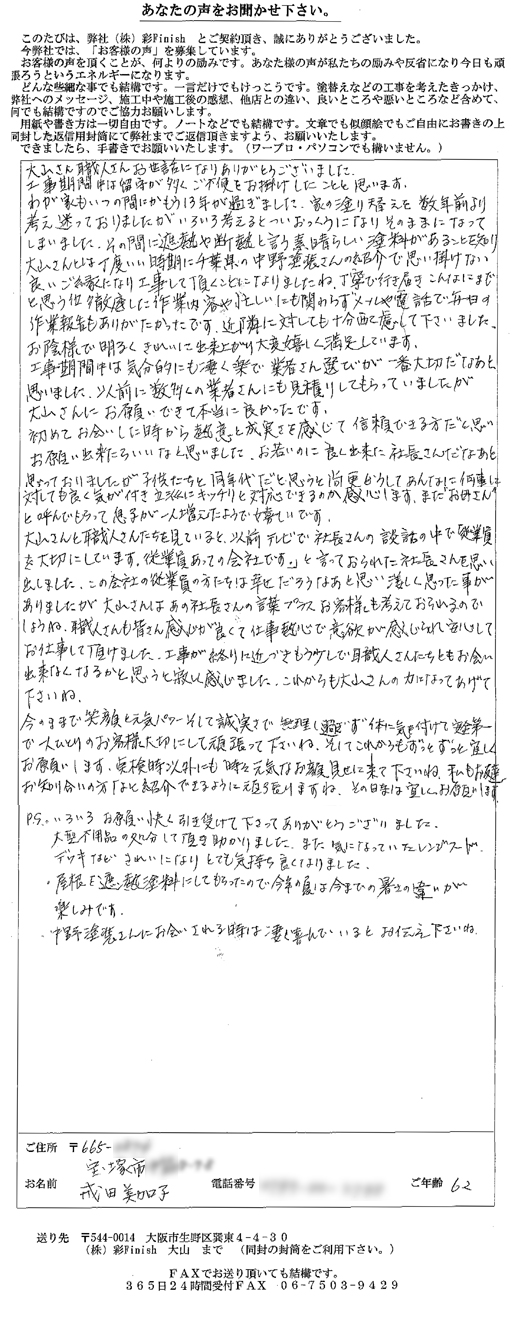 あなたの声をお聞かせ下さい。
このたびは、弊社（株）彩Finish とご契約頂き、誠にありがとうございました。
今弊社では、「お客様の声」を募集しています。
お客様の声を頂くことが、何よりの励みです。あなた様の声が私たちの励みや反省になり今日も頑
張ろうというエネルギーになります。
どんな些細な事でも結構です。一言だけでもけっこうです。塗替えなどの工事を考えたきっかけ、
弊社へのメッセージ、施工中や施工後の感想、他店との違い、良いところや悪いところなど含めて、
何でも結構ですのでご協力お願いします。
用紙や書き方は一切自由です。ノートなどでも結構です。文章でも似顔絵でもご自由にお書きの上
同封した返信用封筒にて弊社までご返信頂きますよう、お願いいたします。
できましたら、手書きでお願いいたします。（ワープロ・パソコンでも構いません。）
大山さん職人さんお世話になりありがとうございました。
工事期間中は留守が多くご不便をお掛けしたことと思います。
わが家もいつの間にかもう13年が過ぎました。家の塗り替えを数年前より
考え迷っておりましたがいろいろ考えるとついおっくうになりそのままになって
しまいました。その間に遮熱や断熱と言う素晴らしい塗料があることを知り
大山さんとは丁度いい時期に千葉県の中野塗装さんの紹介で思い掛けない
良いご縁になり工事して頂くことになりましたね。丁寧で行き届きこんなにまで
と思う位徹底した作業内容や忙しいにも関わらずメールや電話で毎日の
作業報告もありがたかったです。近隣に対しても十分配慮して下さいました。
お陰様で明るくきれいに出来上がり大変嬉しく満足しています。
工事期間中は気分的にも凄く楽で業者さん選びが一番大切だなあと
思いました。以前に数多くの業者さんにも見積りしてもらっていましたが
大山さんにお願いできて本当に良かったです。
初めてお会いした時から熱意と誠実さを感じて信頼できる方だと思い
お願い出来たらいいなと思いました。お若いのに良く出来た社長さんだなあと
思っておりましたが子供たちと同年代だと思うと尚更どうしてあんなに何事に
対しても良く気が付き立派にキッチリと対応できるのか感心します。まだ"お母さん"
と呼んでもらって息子が一人増えたようで嬉しいです。
大山さんと職人さんたちを見ていると、以前テレビで社長さんの談話の中で「従業員
を大切にしています。従業員あっての会社です。」と言っておられた社長さんを思い
出しました。この会社の従業員の方たちは幸せだろうなあと思い羨しく思った事が
ありましたが大山さんはあの社長さんの言葉プラスお客様も考えておられるので
しょうね。職人さんも皆さん感じが良くて仕事熱心で意欲が感じられ安心して
お仕事して頂けました。工事が終りに近づきもう少しで職人さんたちともお会い
出来なくなるかと思うと寂しく感じました。これからも大山さんの力になってあげて
下さいね。
今のままで笑顔と元気パワーそして誠実さで無理し過ぎず体に気を付けて安全第一
で一人ひとりのお客様大切にして頑張って下さいね。そしてこれからもずっとずっと宜しく
お願いします。点検時以外にも時々元気なお顔見せに来て下さいね。私もお友達
お知り合いの方など紹介できるように頑張りますね。その時は宜しくお願いします
P.S. いろいろお願い快く引き受けて下さってありがとうございました。
大型不用品の処分して頂き助かりました。また気になっていたレンジフード、
デッキなどきれいになりとても気持ち良くなりました。
・屋根も遮熱塗料にしてもらったので今年の夏は今までの暑さの違いが
楽しみです。
・中野塗装さんにお会いされる時は凄く喜んでいるとお伝え下さいね。
ご住所 〒665-
宝塚市
お名前 戎田美加子 電話番号 ご年齢 62
送り先 〒544-0014 大阪市生野区巽東４－４－３０
（株）彩Finish 大山 まで （同封の封筒をご利用下さい。）
ＦＡＸでお送り頂いても結構です。
３６５日２４時間受付ＦＡＸ ０６－７５０３－９４２９